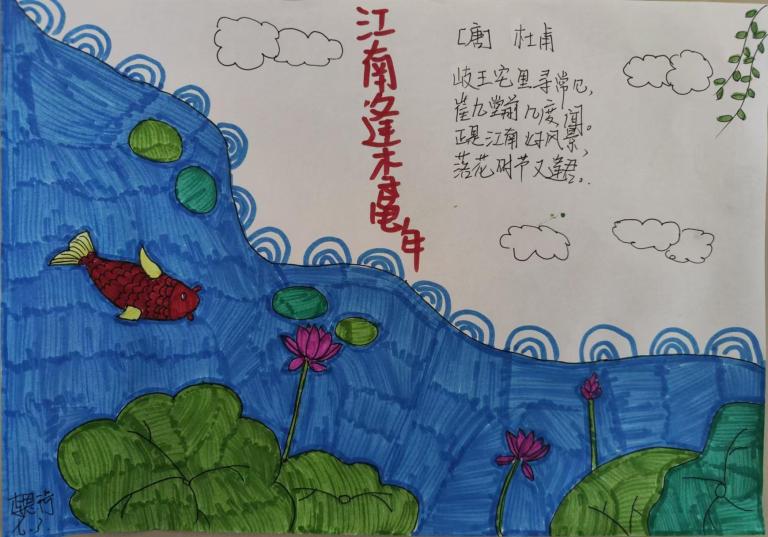 江南逢李龟年
[唐] 杜甫
岐王宅里寻常见,
崔九堂前几度闻。
正是江南好风景,
落花时节又逢君。